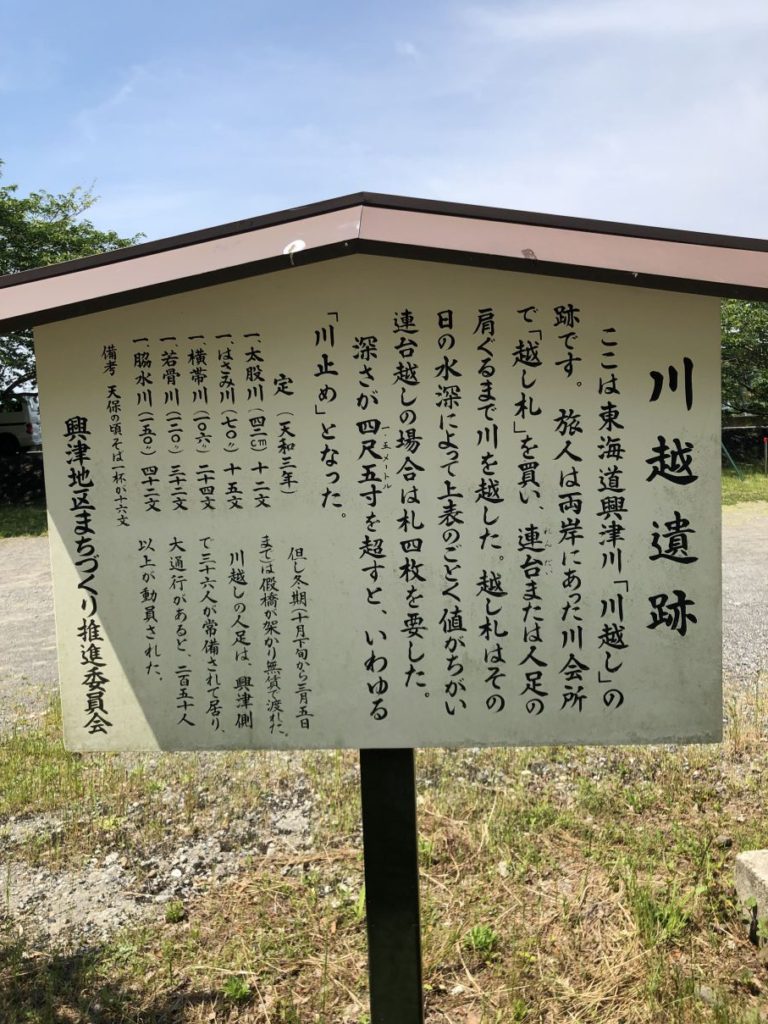 川越遺跡
ここは東海道興津川「川越し」の
跡です。旅人は両岸にあった川会所
で「越し札」を買い、連台または人足の
れんだい
肩ぐるまで川を越した。越し札はその
日の水深によって上表のごとく値がちがい
連台越しの場合は札四枚を要した。
深さが四尺五寸を超すと、いわゆる
一・五メートル
「川止め」となった。
定(天和三年)
一、太股川(四二cm)十二文
一、はさみ川(七〇〃)十五文
一、横帯川(一〇六〃)二十四文
一、若骨川(一二〇〃)三十二文
一、脇水川(一五〇〃)四十二文
備考 天保の頃そば一杯が十六文
但し冬期(十月下旬から三月五日
まで)は假橋が架かり無賃で渡れた。
川越しの人足は、興津側
で三十六人が常備されて居り、
大通行があると、二百五十人
以上が動員された、
興津地区まちづくり推進委員会